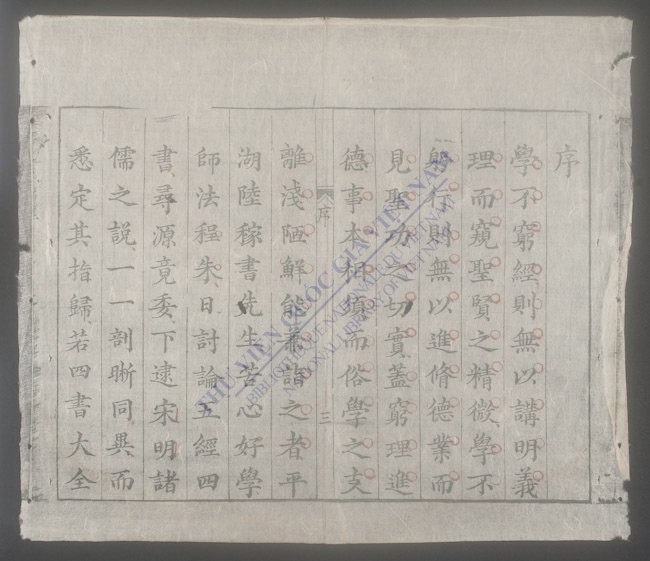 序
學不窮經則無以講明義
理而窺聖賢之精微學不
躬行則無以進脩德業而
見聖功之切實蓋窮理進
德事本相須而俗學之支
序
三
離淺陋鮮能兼詣之者平
湖陸稼書先生苦心好學
師法程朱日討論五經四
書尋源竟委下逮宋明諸
儒之說一一剖晰同異而
悉定其指歸若四書大全
THƯ VIỆN QUỐC GIA VIỆT NAM
BIBLIOTHEQUE NATIONALE DU VIETNAM
NATIONAL LIBRARY OF VIETNAM